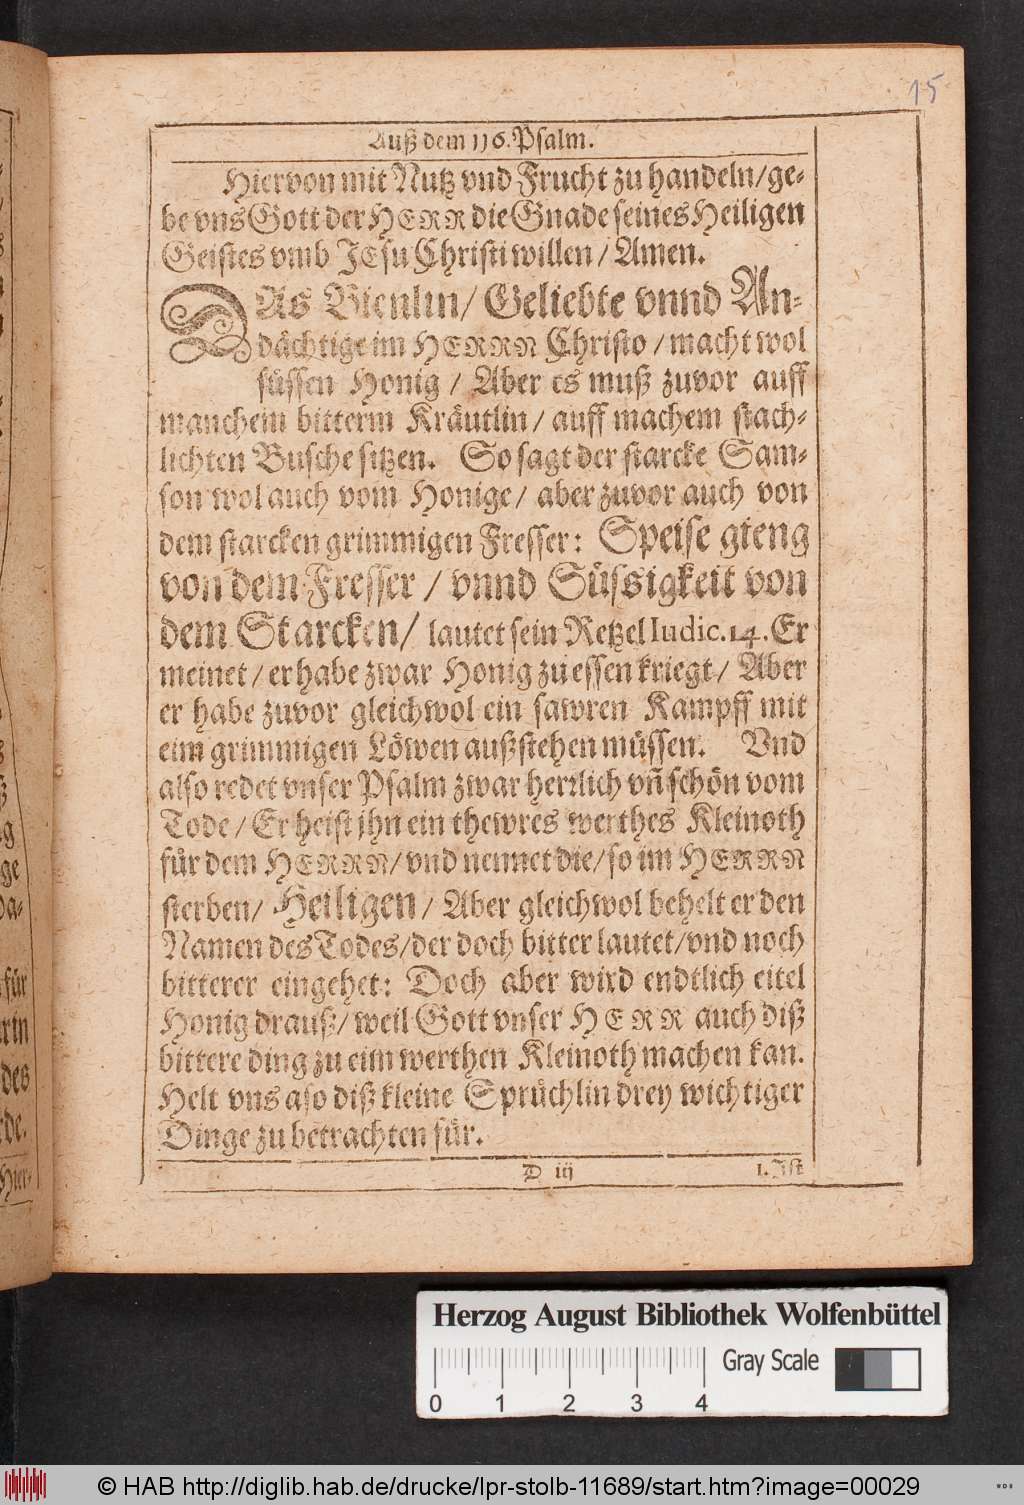 15
Auß dem 116. Psalm.
Hiervon mit Nutz vnd Frucht zu handeln/ge-
be vns Gott der HERR die Gnade seines Heiligen
Geistes vmb JEsu Christi willen/ Amen.
DAs Bienlin/ Geliebte vnnd An-
dächtige im HERRN Christo / macht wol
süssen Honig / Aber es muß zuvor auff
manchem bitterm Kräutlin/ auff machem stach-
lichten Busche sitzen. So sagt der starcke Sam-
son wol auch vom Honige/ aber zuvor auch von
dem starcken grimmigen Fresser: Speise gieng
von dem Fresser / vnnd Süssigkeit von
dem Starcken/ lautet sein Retzel Iudic. 14. Er
meinet/ er habe zwar Honig zu essen kriegt/ Aber
er habe zuvor gleichwol ein sawren Kampff mit
eim grimmigen Löwen außstehen müssen. Vnd
also redet vnser Psalm zwar herrlich vñ schön vom
Tode/ Er heist jhn ein thewres werthes Kleinoth
für dem HERRN/ vnd nennet die/ so im HERRN
sterben/ Heiligen/ Aber gleichwol behelt er den
Namen des Todes/der doch bitter lautet/vnd noch
bitterer eingehet: Doch aber wird endtlich eitel
Honig drauß/ weil Gott vnser HERR auch diß
bittere ding zu eim werthen Kleinoth machen kan.
Helt vns aso diß kleine Sprüchlin drey wichtiger
Dinge zu betrachten für.
D iij
1. Ist
für
rin
des
de.
Hier-
Herzog August Bibliothek Wolfenbüttel
0 1 2 3 4
Gray Scale
© HAB http://diglib.hab.de/drucke/lpr-stolb-11689/start.htm?image=00029